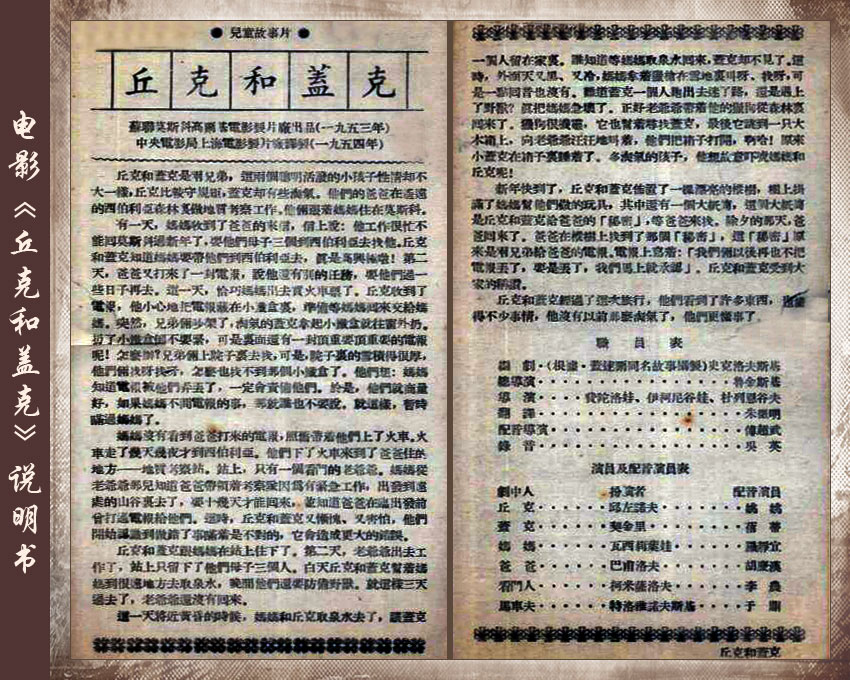 电影《丘克和盖克》说明书
● 兒童故事片 ●
丘克和蓋克
蘇聯莫斯科高爾基電影製片廠出品(一九五三年)
中央電影局上海電影製片廠譯製(一九五四年)
丘克和蓋克是兩兄弟,這兩個聰明活潑的小孩子性情却不
大一樣,丘克比較守規矩,蓋克却有些淘氣。他們的爸爸在遙遠
的西伯利亞森林裏做地質考察工作,他倆跟着媽媽住在莫斯科。
有一天,媽媽收到了爸爸的來信,信上說:他工作很忙不
能回莫斯科過新年了,要他們母子三個到西伯利亞去找他。丘克
和蓋克知道媽媽要帶他們到西伯利亞去,眞是高興極啦!第二
天,爸爸又打來了一封電報,說他還有別的任務,要他們過一
些日子再去。這一天,恰巧媽媽出去買火車票了。丘克收到了
電報,他小心地把電報藏在小鐵盒裏,準備等媽媽回來交給媽
媽。突然,兄弟倆吵架了,淘氣的蓋克拿起小鐵盒就往窗外扔。
扔了小鐵盒倒不要緊,可是裏面還有一封頂重要頂重要的電報
呢!怎麼辦?兄弟倆上院子裏去找,可是,院子裏的雪積得很厚,
他們倆找呀找呀,怎麼也找不到那個小鐵盒了。他們想:媽媽
知道電報被他們弄丟了,一定會責備他們。於是,他們就商量
好,如果媽媽不問電報的事,那就誰也不要說。就這樣,暫時
瞞過媽媽了。
媽媽沒有看到爸爸打來的電報,照舊帶着他們上了火車。火
車走了幾天幾夜才到西伯利亞。他們下了火車來到了爸爸住的
地方——地質考察站。站上,只有一個看門的老爺爺。媽媽從
老爺爺那兒知道爸爸帶領着考察隊因爲有緊急工作,出發到遠
處的山谷裏去了,要十幾天才能回來,並知道爸爸在臨出發前
曾打過電報給他們。這時,丘克和蓋克又慚愧、又害怕,他們
開始認識到做錯了事瞞着是不對的,它會造成更大的錯誤。
丘克和蓋克跟媽媽在站上住下了。第二天,老爺爺出去工
作了,站上只留下了他們母子三個人。白天丘克和蓋克幫着媽
媽到很遠地方去取泉水,晚間他們還要防備野獸。就這樣三天
過去了,老爺爺還沒有回來。
這一天將近黃昏的時候,媽媽和丘克取泉水去了,讓蓋克
一個人留在家裏。誰知道等媽媽取泉水回來,蓋克却不見了。這
時,外面天又黑、又冷,媽媽拿着獵槍在雪地裏叫呀、找呀,可
是一點回音也沒有。難道蓋克一個人跑出去迷了路,還是遇上
了野獸?眞把媽媽急壞了。正好老爺爺帶着他的獵狗從森林裏
回來了。獵狗很機靈,它也幫着尋找蓋克,最後它跑到一只大
木箱上,向老爺爺汪汪地叫着,他們把箱子打開,啊哈!原來
小蓋克在箱子裏睡着了。多淘氣的孩子,他想故意嚇唬媽媽和
丘克呢!
新年快到了,丘克和蓋克佈置了一棵漂亮的樅樹,樹上掛
滿了媽媽幫他們做的玩具,其中還有一個大紙壽,這個大紙壽
是丘克和蓋克給爸爸的「秘密」,等爸爸來找。除夕的那天,爸
爸回來了。爸爸在樅樹上找到了那個「秘密」,這「秘密」原
來是兩兄弟給爸爸的電報。電報上寫着:「我們倆以後再也不把
電報丟了,要是丟了,我們馬上就承認」。丘克和蓋克受到大
家的稱讚。
丘克和蓋克經過了這次旅行,他們看到了許多東西,
得不少事情,他沒有以前那麼淘氣了,他們更懂事了。
職員表
編劇·(根據·蓋達爾同名故事編製)史克洛夫斯基
總導演·················魯金斯基
導演·······費陀洛娃、伊柯尼谷娃、杜列恩谷夫
翻譯·················朱微明
配音導演···············傅超武
錄音·················吳英
演員及配音演員表
劇中人 扮演者 配音演員
丘克······邱左諾夫······姚姚
蓋克······契金里······蒲蕾
媽媽······瓦西莉葉娃······溫靜宜
爸爸······巴甫洛夫······胡慶漢
看門人······柯米薩洛夫······李農
馬車夫······特洛雅諾夫斯基······于鼎
丘克和蓋克